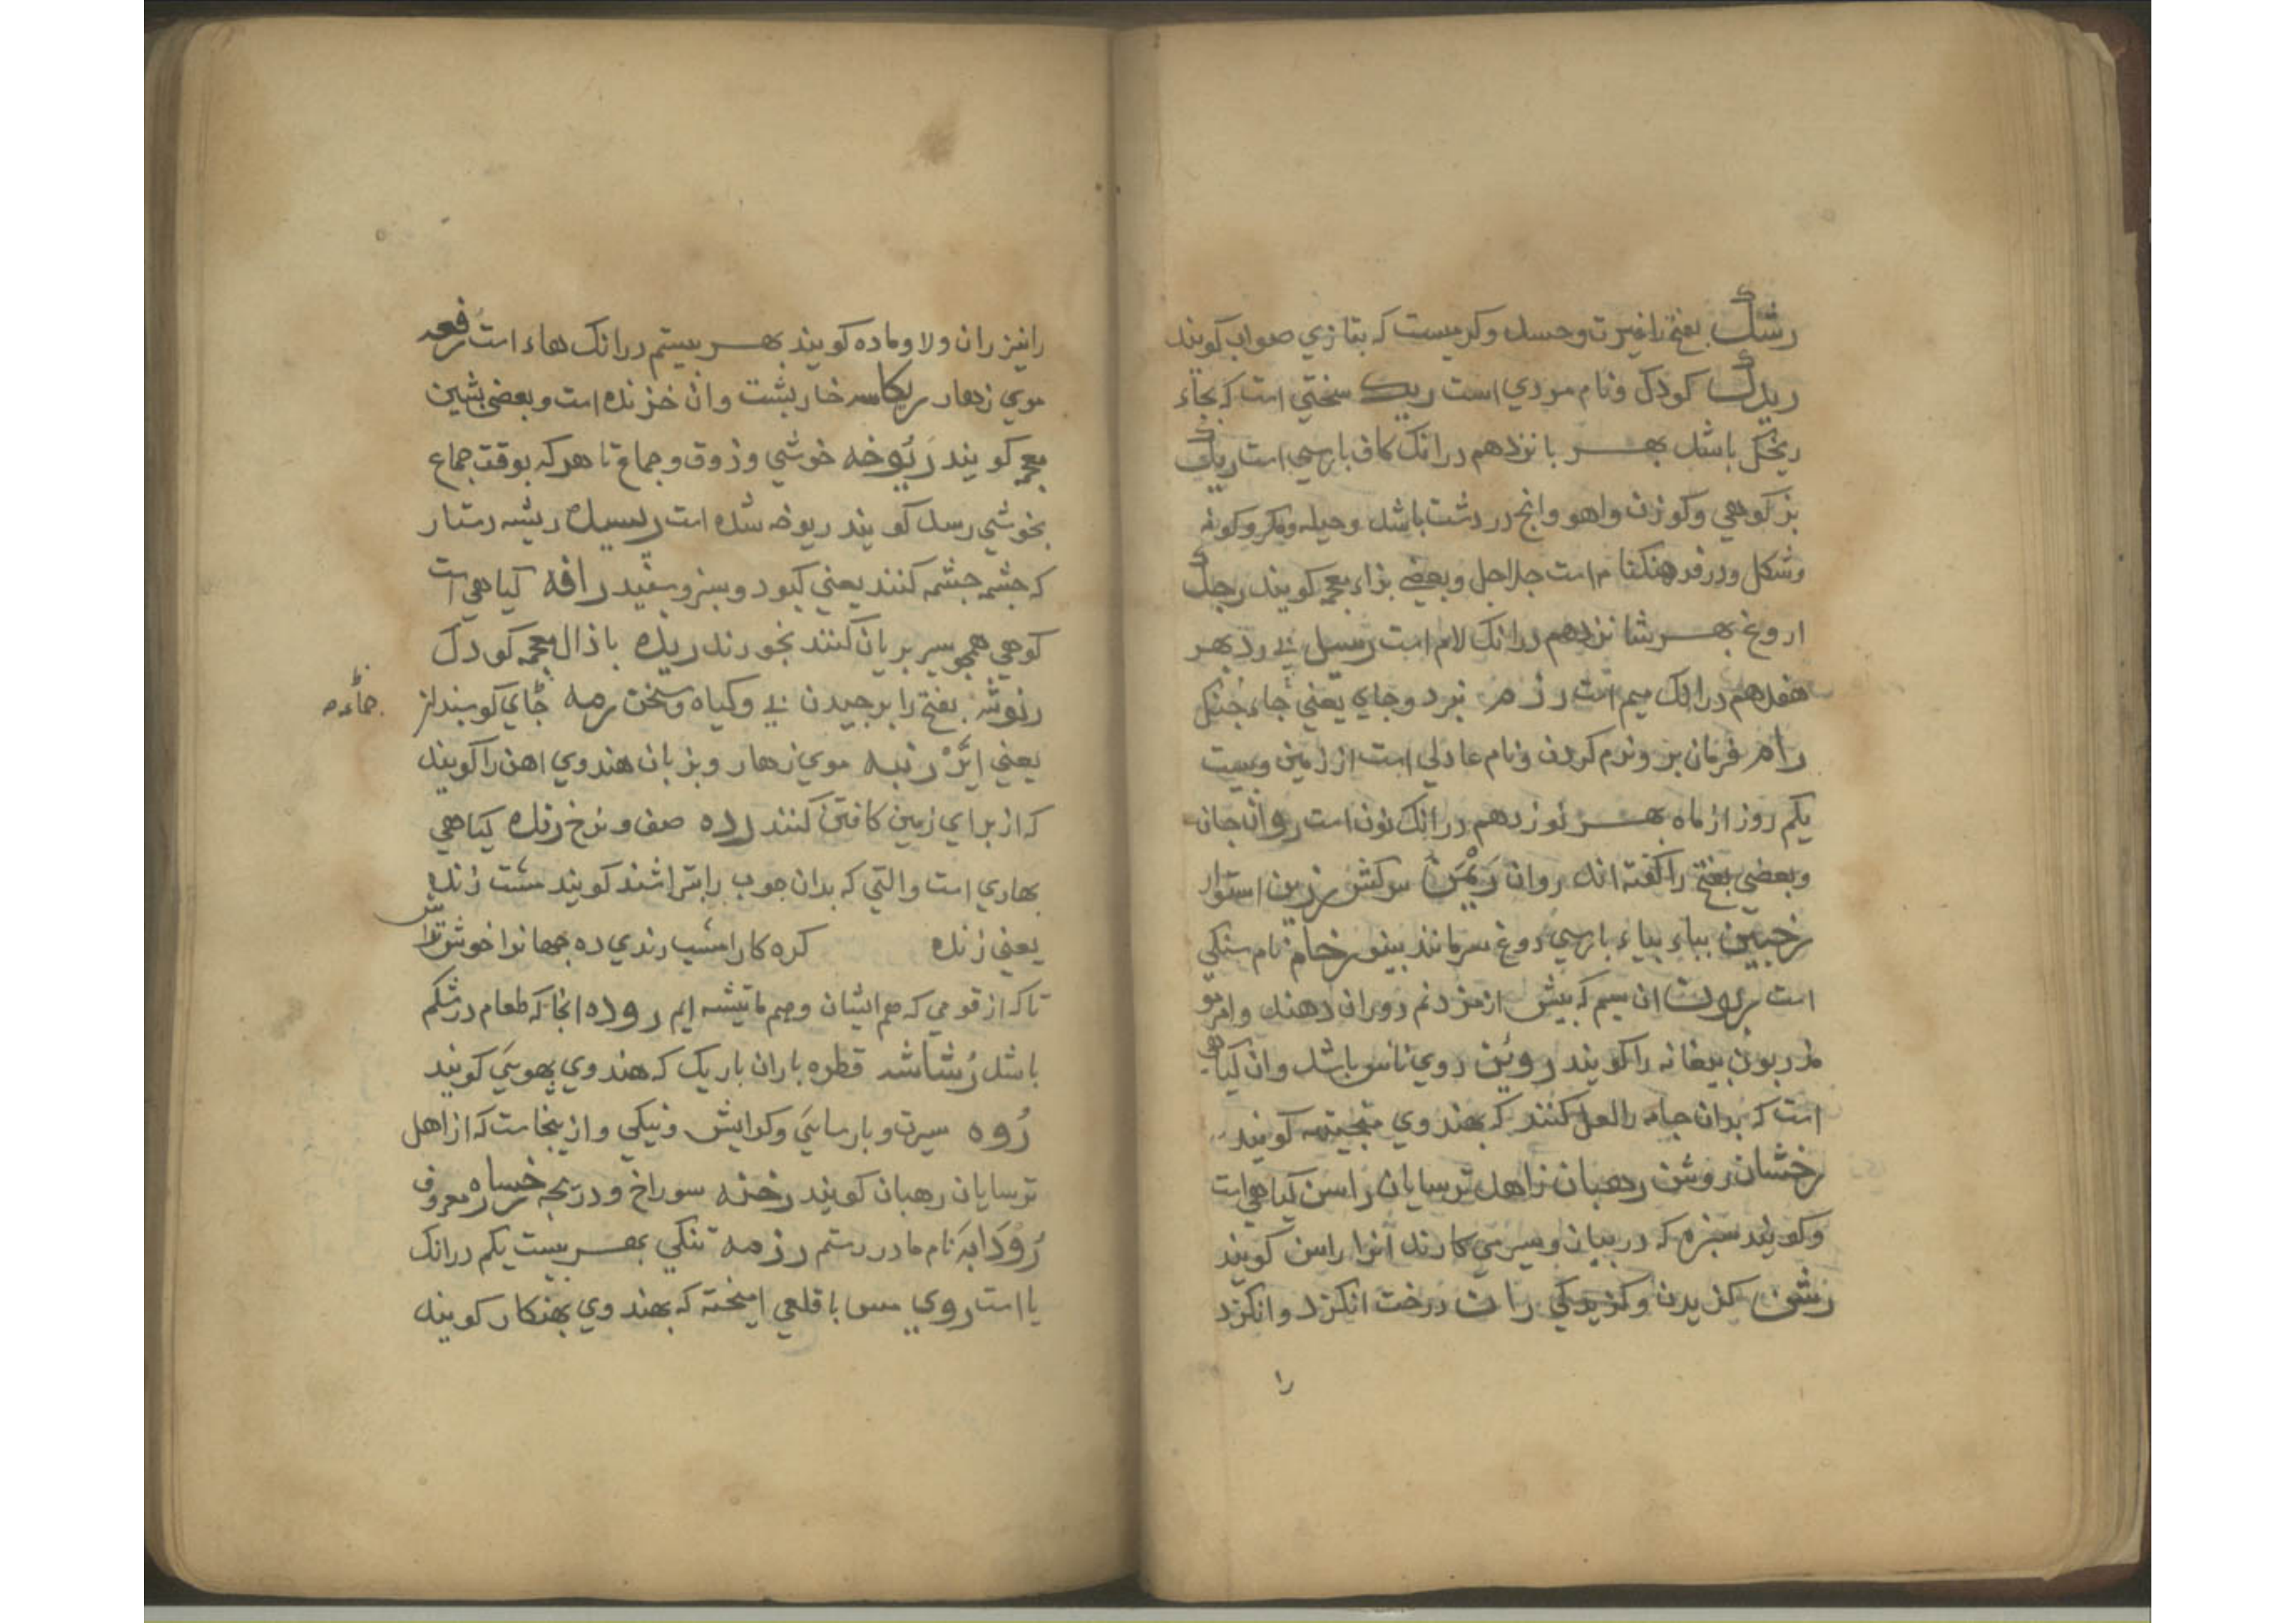 رشک بفتح را غیرت و حسد و کرمیست که بتازی صواب کویند
ریدک کودک و نام مردی است ریک سختی است که بجاء
ریخکل باشد بهر بانزدهم در انک کاف بارسی است رنک
بز کوهی و کوزن و اهو و انج در دشت باشد و حیله و مکر و کونه
و شکل و در فرهنکنام است جلاجل و بعضی بزاء معجمه کویند رجک
اروغ بهر شانزدهم در انک لام است رسیل بی رد بهر
هفدهم در انک میم است رزم نبرد و جای یعنی جاء جنکل
رام فرمان بر و نرم کردن و نام عادلی است از زمین و بیست
یکم روز از ماه بهر نوزدهم در انک نون است روان جان
و بعضی بفتح را کفته اند روان ریمن سرکش رزین استوار
رخبین بباء بیاء بارسی دوغ سرمانند بینو رخام نام سنکی
است ربون ان سیم که بیش از مزد نم دوران دهند و امر
در بودن بیغانه را کویند روین روی ناس باشد و ان کیاهی
است که بدان جامه را لعل کنند که بهندوی مجیته کویند
رخشان روشن رهبان زاهد ترسایان راسن کیاهی است
و کویند سبزه که در بیان و سیر می کارند انرا راسن کویند
رشن کزیدن و کزیدکی ران درخت انکزد و انکزد
را
را نیز ران و لا و ماده کویند بهر بیستم در انک هاء است رفعه
موی زهار ریکاسه خاربشت و ان خزنده است و بعضی بشین
معجمه کویند ریوخه خوشی و ذوق و جماع تا هر که بوقت جماع
بخوشی رسد کویند ریوخه شده است رسیده ریشه دستار
که جشمه جشمه کنند یعنی کبود و سبز و سفید رافه کیاهی است
کوهی همجو سیر بریان کنند بخورند ریذه با ذال معجمه کودک
رنوشه بفتح را برجیدن بی و کیاه و سخن رمه جای کوسبندان
یعنی ایر رنبه موی زهار و بزبان هندوی اهن را کویند
که از برای زمین کافتن کنند رده صف و نرخ رنده کیاهی
بهاری است و التی که بدان جوب را بتراشند کویند مشت رنده
یعنی زنده کره کار امشب رندی ده جهانرا خوش تراش
تا که از قومی که هم ایشان و هم ما تیشه ایم روده انجا که طعام در شکم
باشد رشاشه قطره باران باریک که هندوی بهوسی کویند
روه سیرت و بارسائی و کرایش و نیکی و از ینجاست که از اهل
ترسایان رهبان کویند رخنه سوراخ و دریجه رخساره معروف
رودابه نام مادر رستم رزمه تنکی بهر بیست یکم در انک
یا است روی مس با قلعی امیخته که بهندوی بهنکار کویند